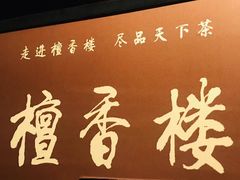 走进檀香楼 尽品天下茶
檀香楼